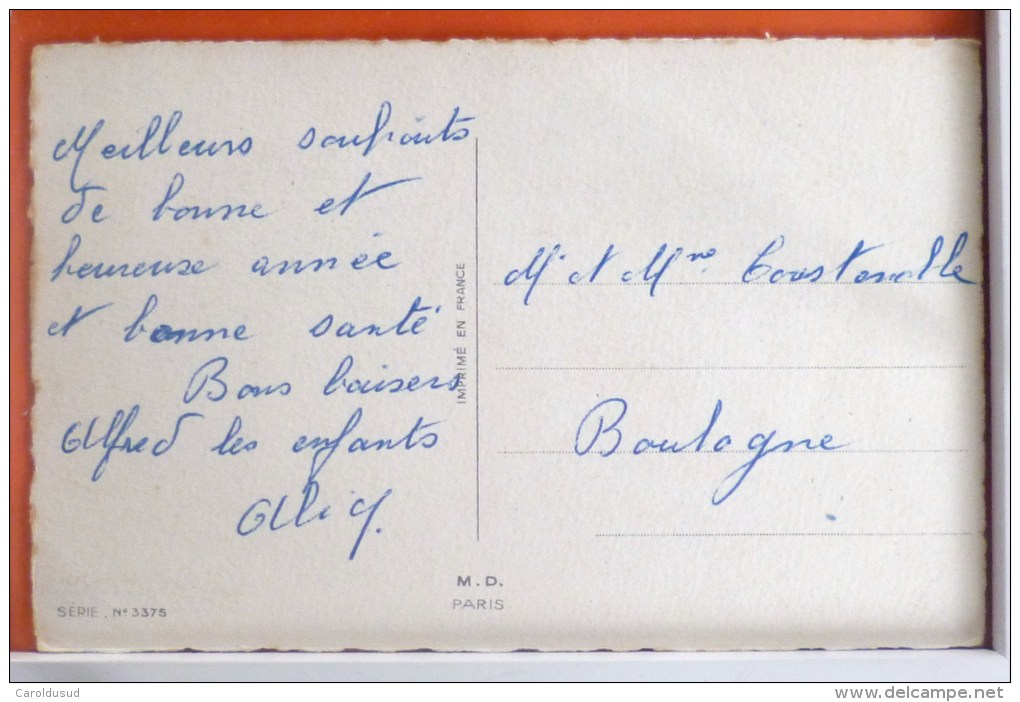 Meilleurs souhaits
de bonne et
heureuse année
et bonne santé
Bons baisers
Alfred les enfants
M. et Mme
Boulogne
IMPRIMÉ EN FRANCE
M. D.
PARIS
SÉRIE . No 3375
Caroldusud
www.delcampe.net